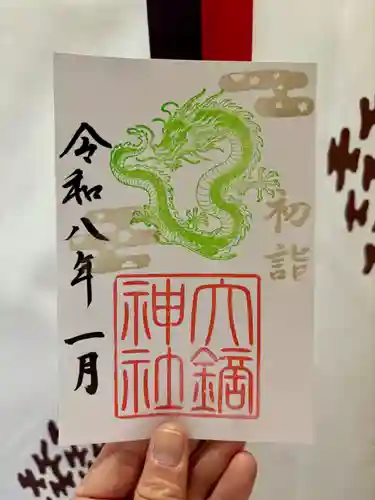 初詣
六鏑
神社
令和八年一月